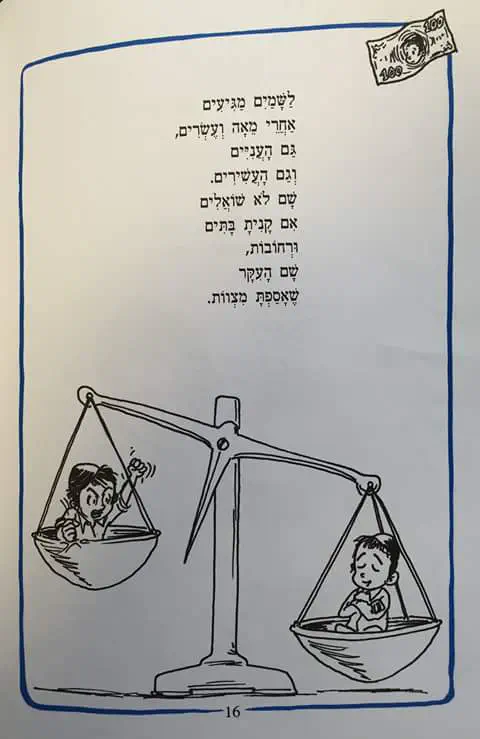 100
100
לַשָּׁמַיִם מַגִּיעִים
אַחֲרֵי מֵאָה וְעֶשְׂרִים,
גַּם הָעֲנִיִּים
וְגַם הָעֲשִׁירִים.
שָׁם לֹא שׁוֹאֲלִים
אִם קָנִיתָ בָּתִּים
וּרְחוֹבוֹת,
שָׁם הָעִקָּר
שֶׁאָסַפְתָּ מִצְווֹת.
16